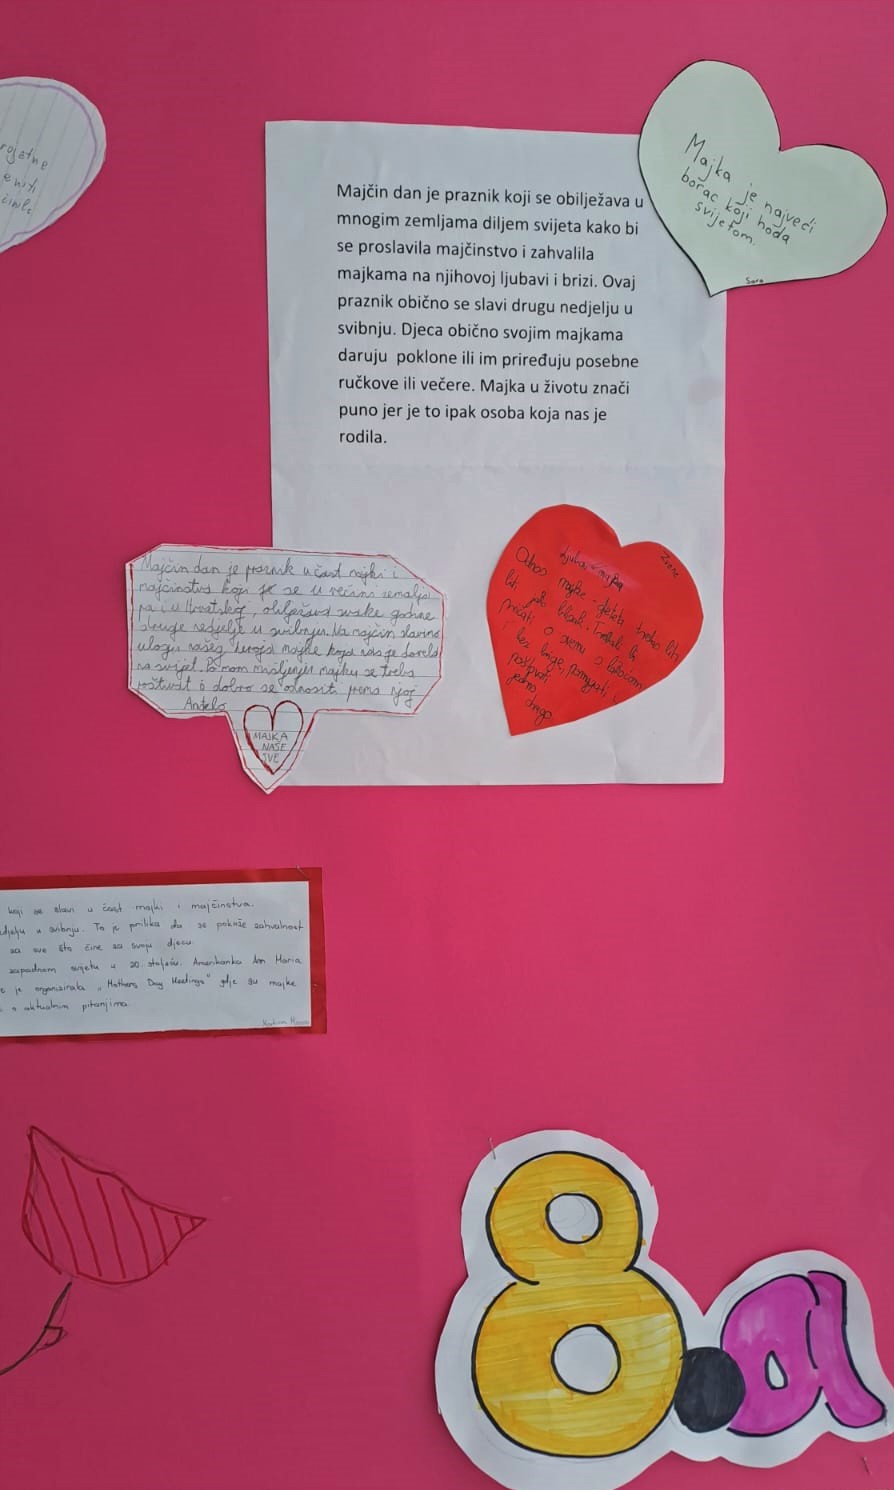 Majka je najveći
borac koji hoda
svijetom.
Sara
Majčin dan je praznik koji se obilježava u
mnogim zemljama diljem svijeta kako bi
se proslavila majčinstvo i zahvalila
majkama na njihovoj ljubavi i brizi. Ovaj
praznik obično se slavi drugu nedjelju u
svibnju. Djeca obično svojim majkama
daruju poklone ili im priređuju posebne
ručkove ili večere. Majka u životu znači
puno jer je to ipak osoba koja nas je
rodila.
Majčin dan je praznik u čast majki i
majčinstva koji se u većini zemalja
pa i u Hrvatskoj, obilježava svake godine
druge nedjelje u svibnju. Na majčin slavimo
ulogu našeg heroja majke koja nas je donela
na svijet. Po mom mišljenju majku se treba
poštivat i dobro se odnosit prema njoj
Anđelo
MAJKA
NAŠE
SVE
Odnos majke - djeteta treba biti
biti jako bliski. Trebali bi
pričati o svemu s lakoćom
i bez brige, pomagati i
poštovati
jedno
drugo
koji se slavi u čast majki i majčinstva.
u svibnju. To je prilika da se pokaže zahvalnost
za sve što čine za svoju djecu.
zapadnom svijetu u 20. stoljeću. Amerikanka Ann Maria
je organizirala "Mothers Day Meetings" gdje su majke
o aktualnim pitanjima.
8.a